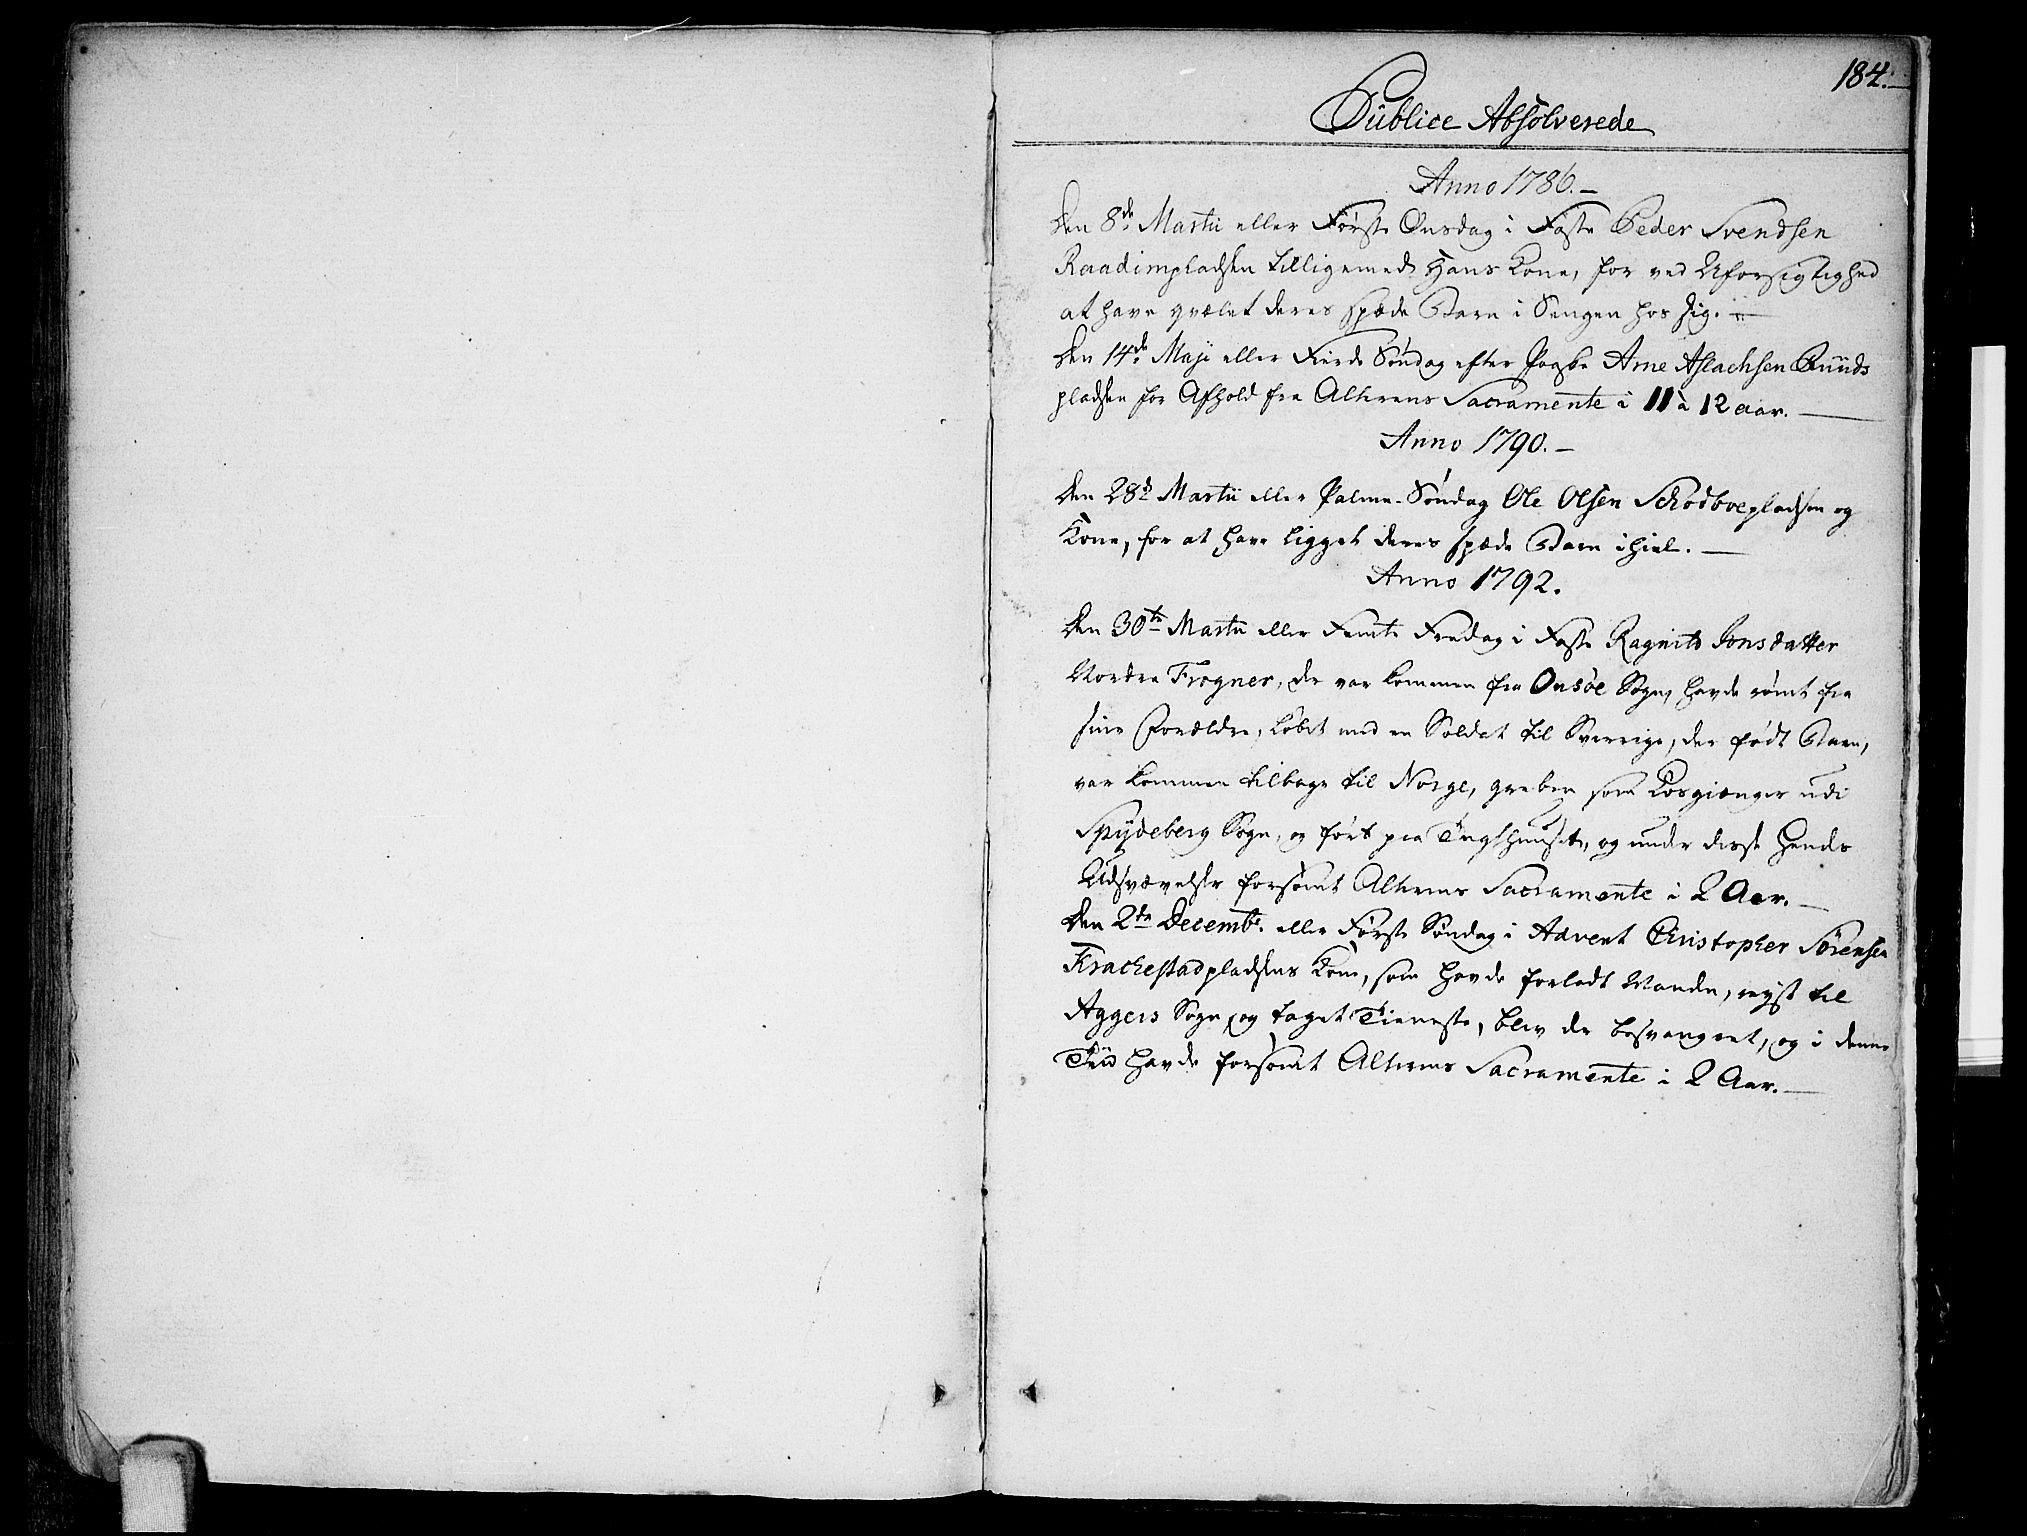 184.
Publice Absolverede
Anno 1786.
Den 8de Martii eller Første Onsdag i Faste Peder Svendsen
Raadimpladsen tilligemed Hans Kone, for ved Uforsigtighed
at have qvælet deres spæde Barn i Sengen hos sig.
Den 14de Maji eller Fierde Søndag efter Paaske Arne Aslachsen Ruuds
pladsen for Afhold fra Alterens Sacramente i 11 à 12 aar.
Anno 1790.
Den 28de Martii eller Palme-Søndag Ole Olsen Schodboepladsen og
Kone, for at have ligget deres spæde Barn ihiel.
Anno 1792.
Den 30te Martii eller Femte Fredag i Faste Ragnild Jonsdatter
Nordre Frogner, der var kommen fra Onsøe Sogn, havde rømt fra
sine Forældre, løbet med en Soldat til Sverrige, der født Barn,
var kommen tilbage til Norge, greben som Løsgiænger udi
Spydeberg Sogn, og ført paa Tugthuuset, og under disse hendes
Udsvævelser forsømt Alterens Sacramente i 2 Aar.
Den 2den Decembr. eller Første Søndag i Advent Christopher Sørensen
Krachestadpladsens Kone, som havde forladt Manden, reyst til
Aggers Sogn og taget Tieneste, blev der besvangret, og i denne
Tiid havde forsømt Alterens Sacramente i 2 Aar.